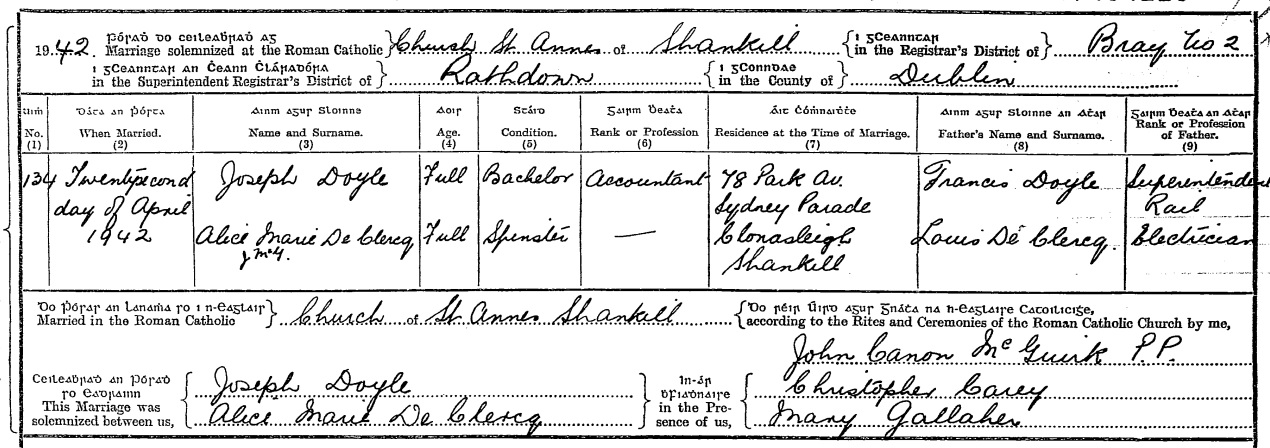 Pórad do ceileabrad ag
1942. Marriage solemnized at the Roman Catholic } Church St Annes of Shankill { i gCeanntar in the Registrar's District of } Bray No 2
i gCeanntar an Ceann Cláradóra in the Superintendent Registrar's District of } Rathdown { i gConndae in the County of } Dublin
Uim No. (1) | Dáta an Pórta When Married. (2) | Ainm agur Sloinne Name and Surname. (3) | Aoir Age. (4) | Stáid Condition. (5) | Gairm Beata Rank or Profession (6) | Áit Cómnaite Residence at the Time of Marriage. (7) | Ainm agur Sloinne an Atar Father's Name and Surname. (8) | Gairm Beata an Atar Rank or Profession of Father. (9)
134 Twentysecond Joseph Doyle Full Bachelor Accountant 78 Park Av. Francis Doyle Superintendent
day of April Sydney Parade Rail
1942 Alice Marie De Clercq Full Spinster — Clonasleigh Louis De Clercq. Electrician
J McG. Shankill
Do Pórad an Lanama ro i n-eaglair Married in the Roman Catholic } Church of St Annes Shankill { Do réir Uird agur Gnáta na h-eaglaire Catoilicige, according to the Rites and Ceremonies of the Roman Catholic Church by me,
John Canon McGuirk P.P.
Ceileabrad an Pórad ro eadrainn This Marriage was solemnized between us, { Joseph Doyle } In-ár bfiadnaire in the Presence of us, { Christopher Carey
Alice Marie De Clercq Mary Gallaher